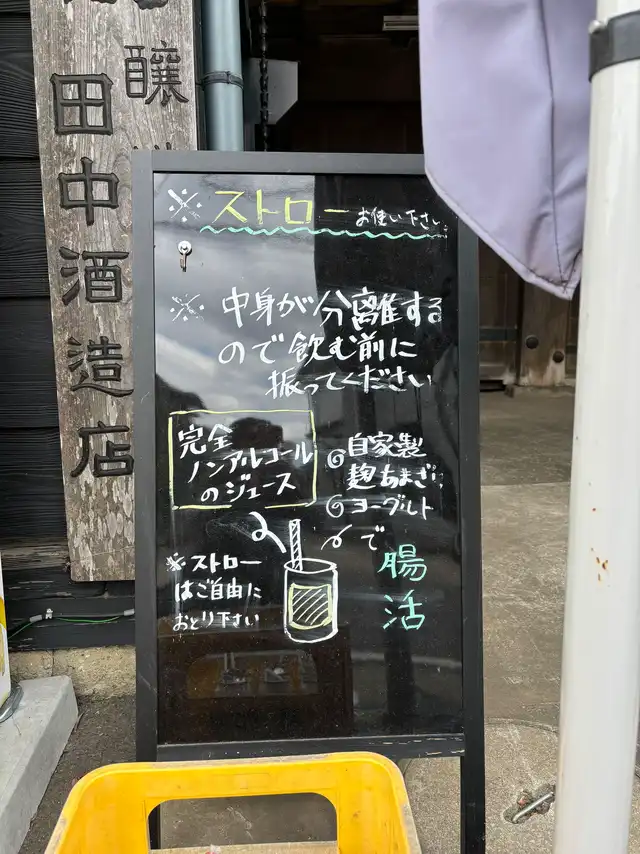 醸
田中酒造店
※ストローお使い下さい
※中身が分離する
ので飲む前に
振ってください
完全
ノンアルコール
のジュース
自家製
麹あまざけ
ヨーグルト
で
腸
活
※ストロー
はご自由に
おとり下さい